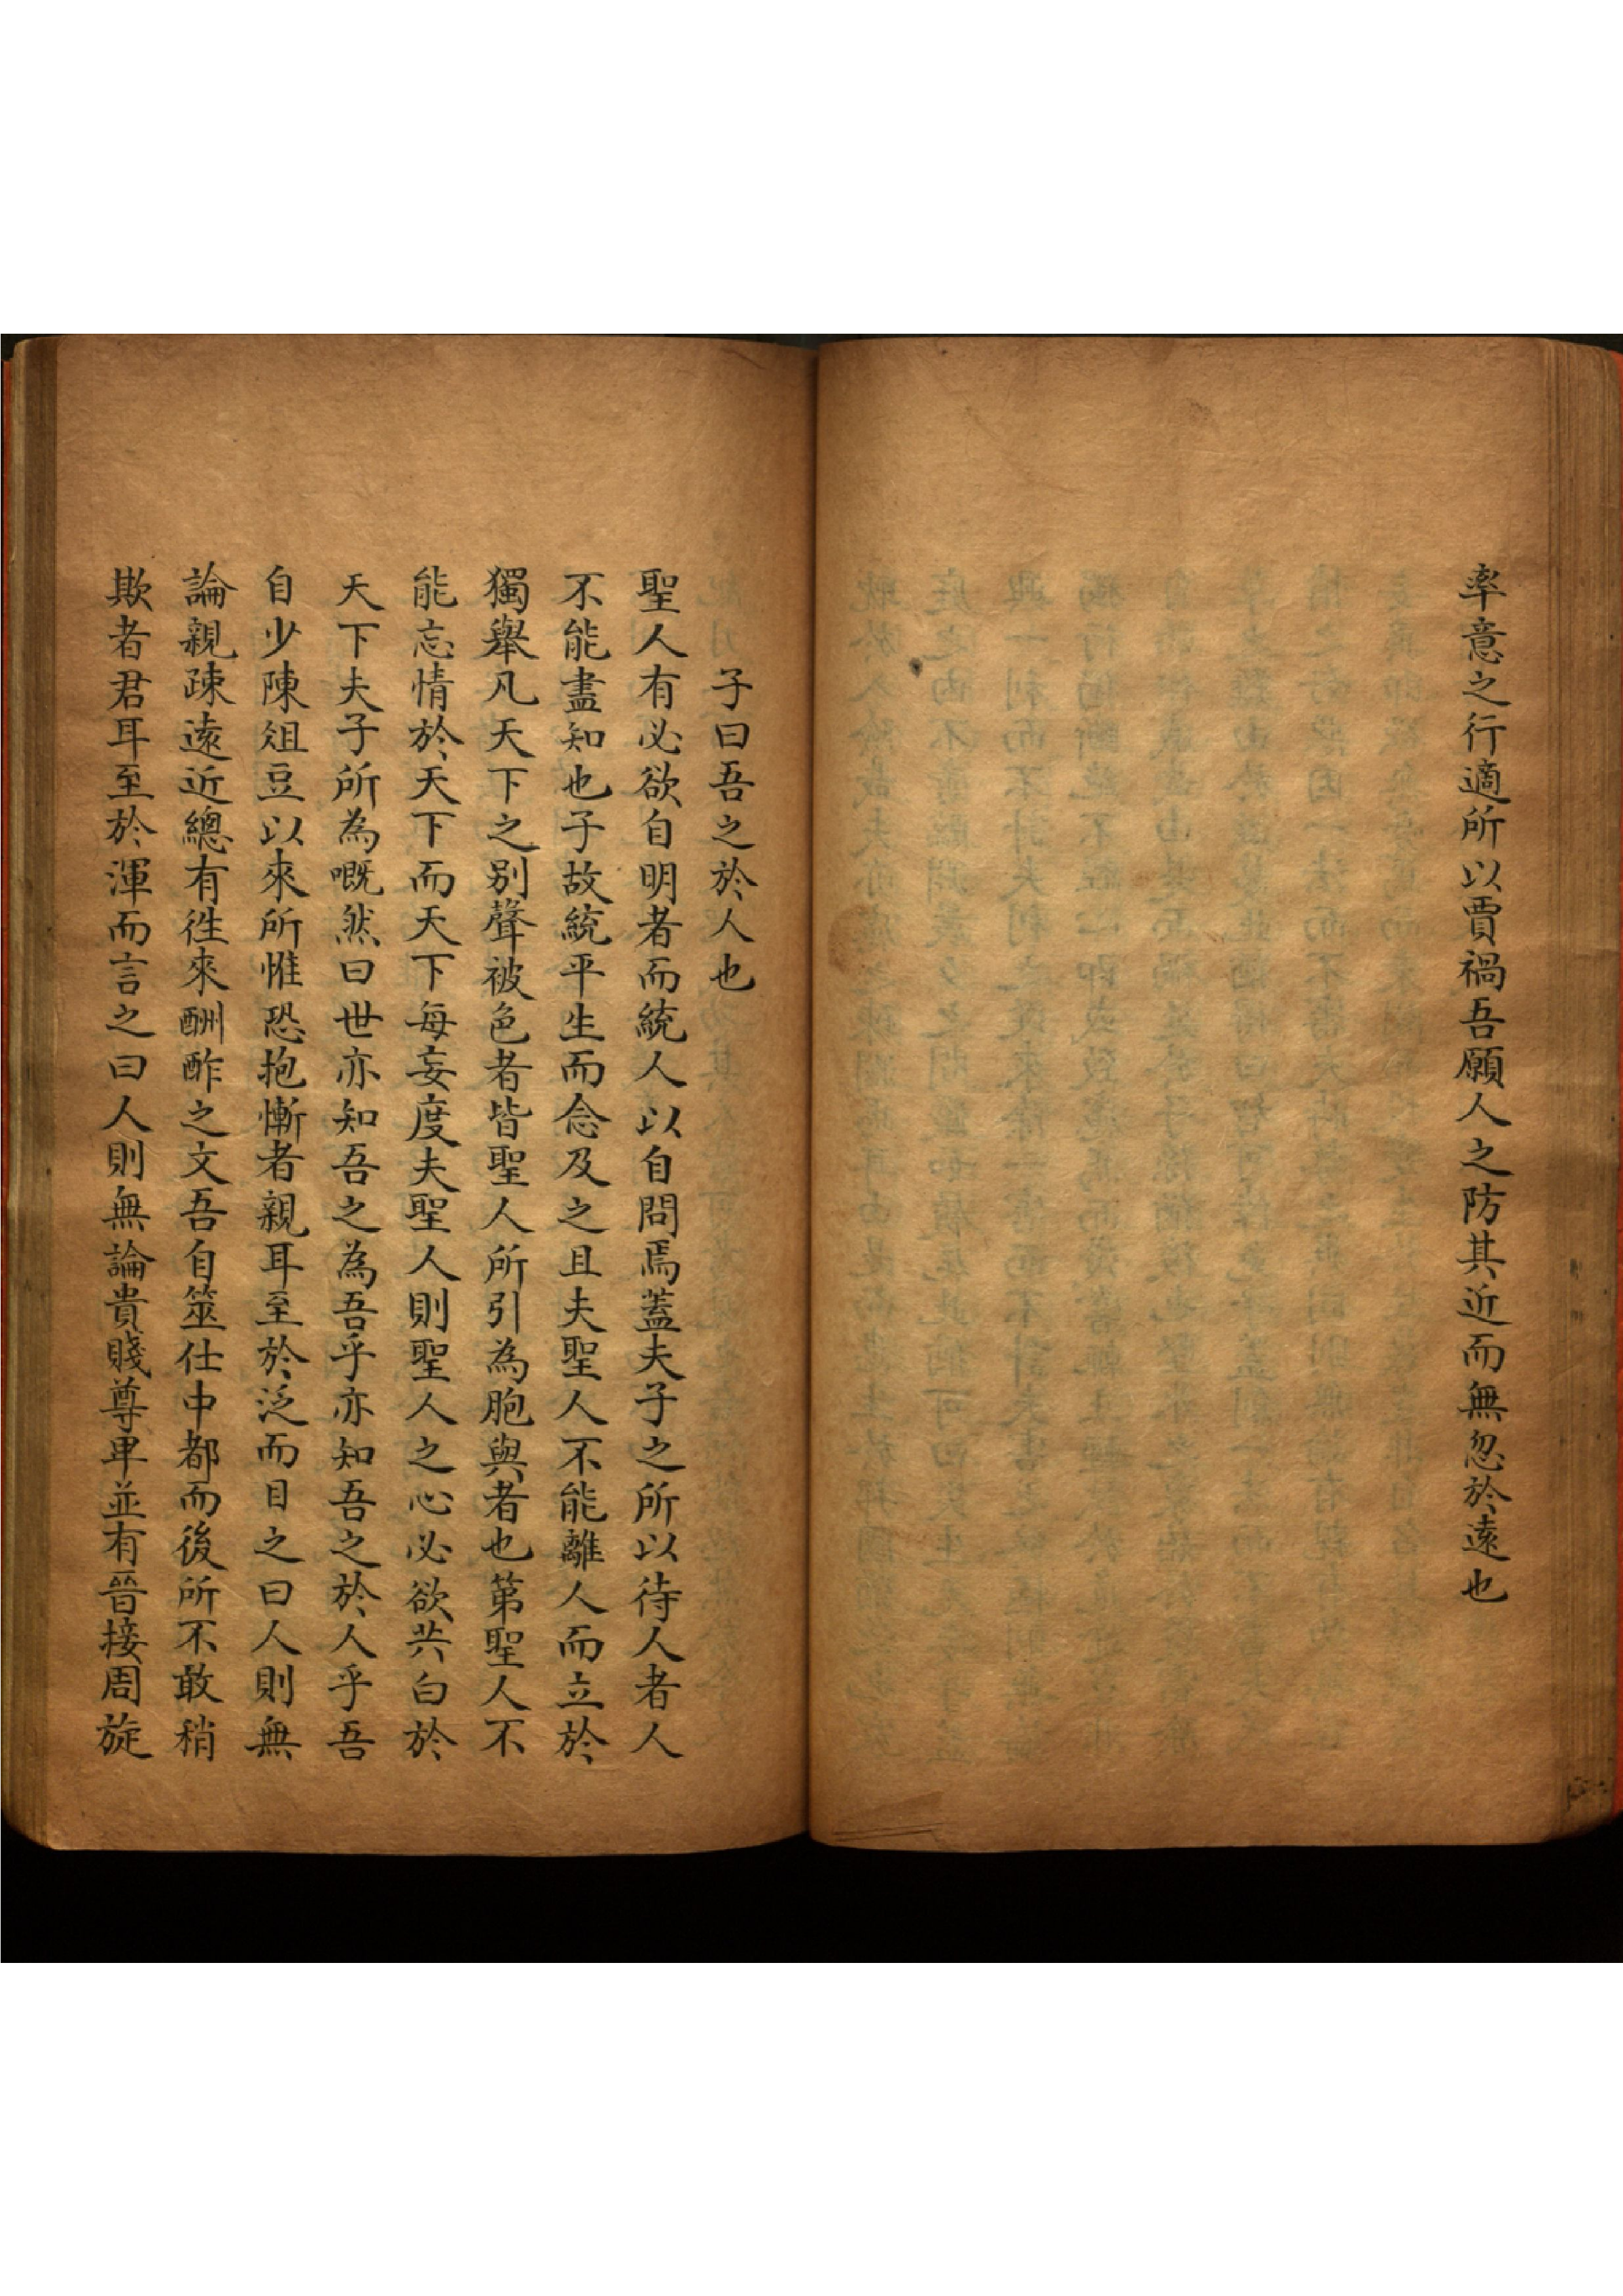 率意之行適所以賈禍吾願人之防其近而無忽於遠也
子曰吾之於人也
聖人有必欲自明者而統人以自問焉蓋夫子之所以待人者人
不能盡知也子故統平生而念及之且夫聖人不能離人而立於
獨舉凡天下之別聲被色者皆聖人所引為胞與者也第聖人不
能忘情於天下而天下每妄度夫聖人則聖人之心必欲共白於
天下夫子所為嘅然曰世亦知吾之為吾乎亦知吾之於人乎吾
自少陳俎豆以來所惟恐抱慚者親耳至於泛而目之曰人則無
論親疎遠近總有徃來酬酢之文吾自筮仕中都而後所不敢稍
欺者君耳至於渾而言之曰人則無論貴賤尊卑並有晉接周旋